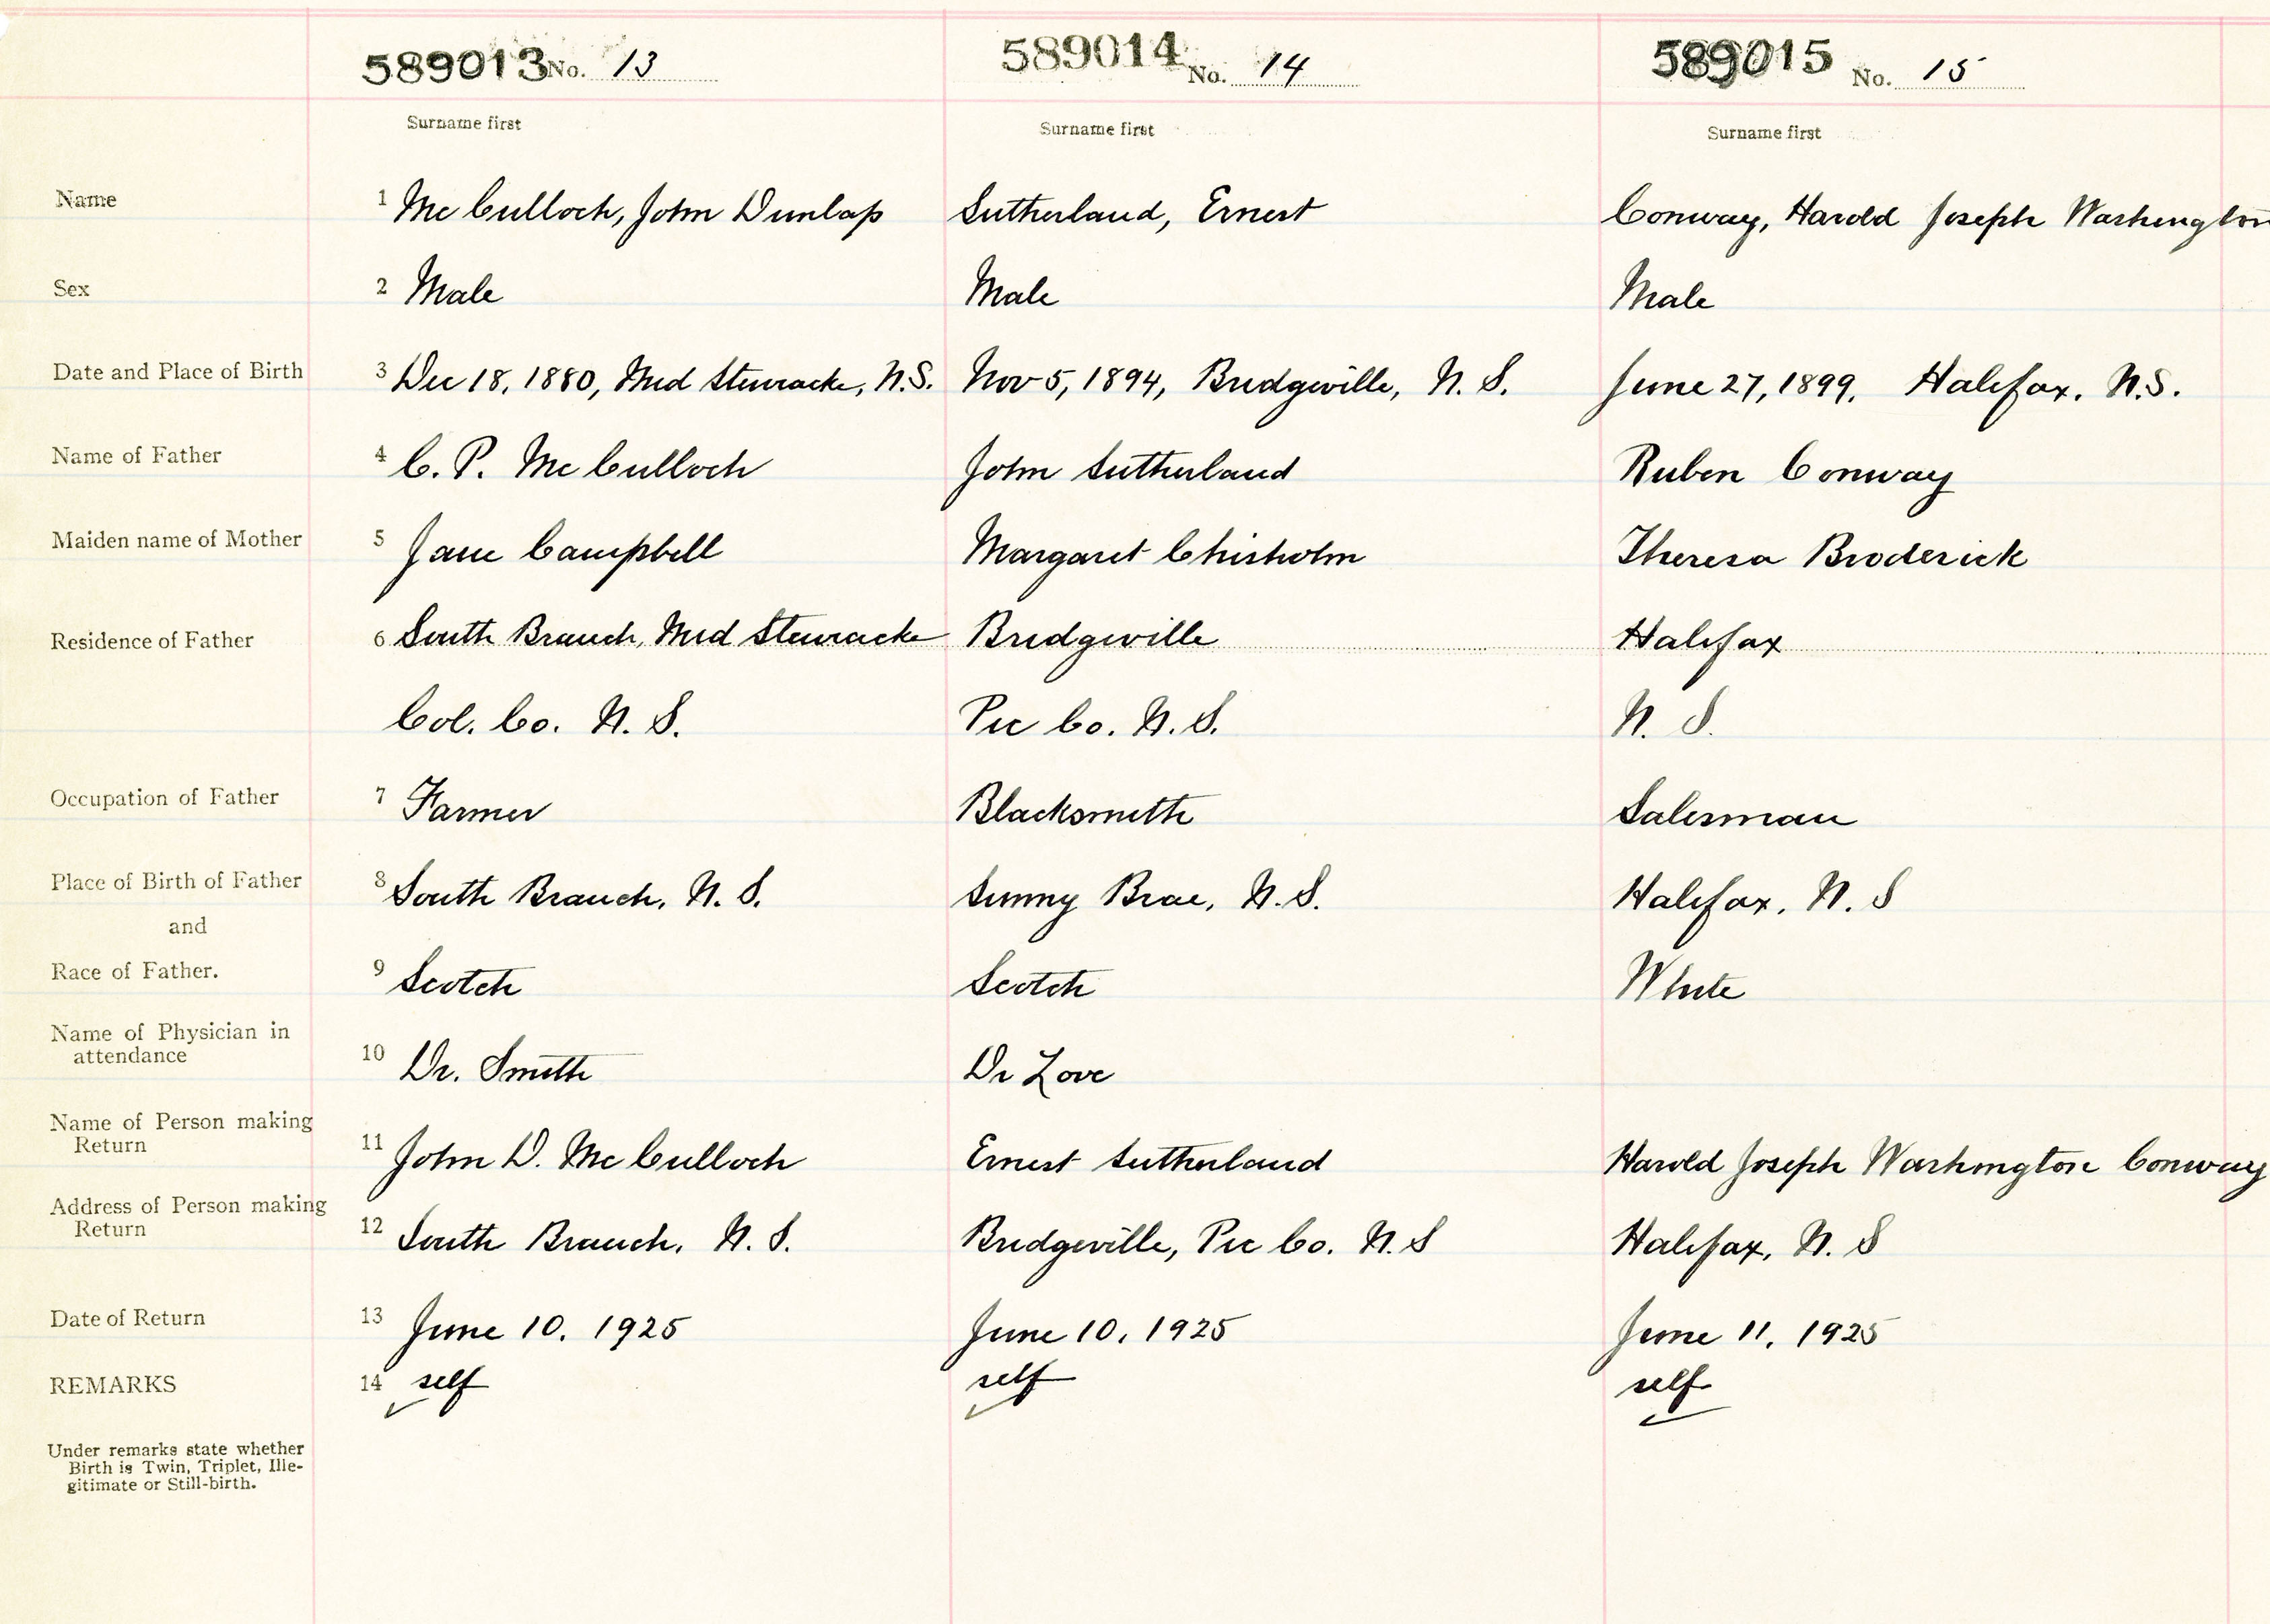 589013 No. 13 589014 No. 14 589015 No. 15
Surname first Surname first Surname first
Name 1 McCulloch, John Dunlap Sutherland, Ernest Conway, Harold Joseph Washington
Sex 2 Male Male Male
Date and Place of Birth 3 Dec 18, 1880, Mid Stewiacke, N.S. Nov 5, 1894, Bridgeville, N. S. June 27, 1899. Halifax. N.S.
Name of Father 4 C. P. McCulloch John Sutherland Ruben Conway
Maiden name of Mother 5 Jane Campbell Margaret Chisholm Theresa Broderick
Residence of Father 6 South Branch, Mid Stewiacke Bridgeville Halifax
Col. Co. N. S. Pic Co. N.S. N. S.
Occupation of Father 7 Farmer Blacksmith Salesman
Place of Birth of Father 8 South Branch, N. S. Sunny Brae, N.S. Halifax, N. S
and
Race of Father. 9 Scotch Scotch White
Name of Physician in
attendance 10 Dr. Smith Dr Love
Name of Person making
Return 11 John D. McCulloch Ernest Sutherland Harold Joseph Washington Conway
Address of Person making
Return 12 South Branch, N. S. Bridgeville, Pic Co. N. S Halifax, N. S
Date of Return 13 June 10. 1925 June 10, 1925 June 11, 1925
REMARKS 14 self self self
Under remarks state whether
Birth is Twin, Triplet, Ille-
gitimate or Still-birth.